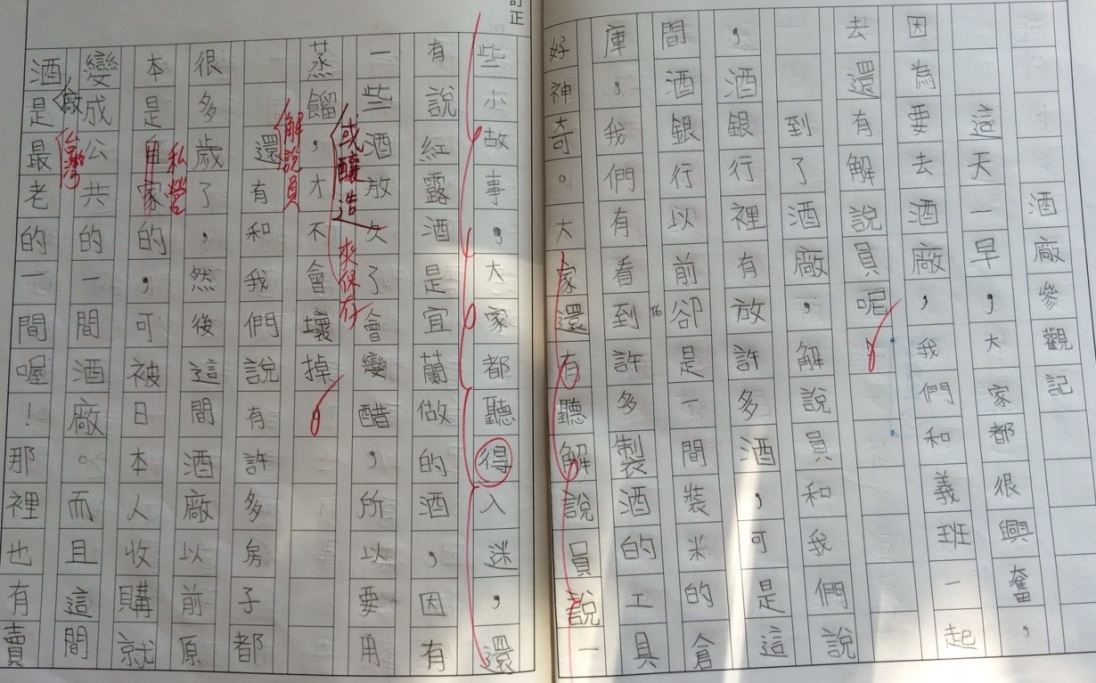 酒廠參觀記
這天一早,大家都很興奮,
因為要去酒廠,我們和義班一起
去還有解說員呢。
到了酒廠,解說員和我們說
,酒銀行裡有放許多酒,可是這
間酒銀行以前卻是一間裝米的倉
庫,我們有看到許多製酒的工具
好神奇。大家還有聽解說員說一
訂正
些小故事,大家都聽得入迷,還
有說紅露酒是宜蘭做的酒,因有
一些酒放久了會變醋,所以要用
蒸餾,才不會壞掉。
或釀造來保存
解說員
還有和我們說有許多房子都
很多歲了,然後這間酒廠以前原
私營
本是用家的,可被日本人收購就
變成公共的一間酒廠。而且這間
廠
台灣
酒是最老的一間喔!那裡也有賣